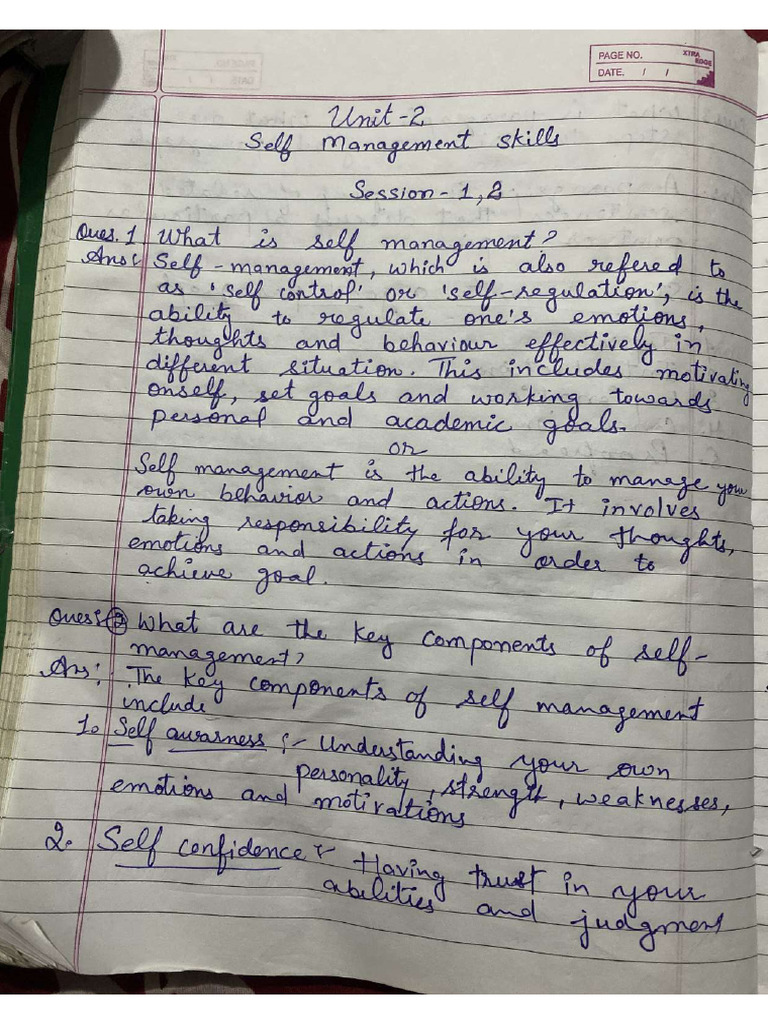 PAGE NO.
XTRA EDGE
DATE. / /
Unit-2
Self Management Skills
Session - 1, 2
Ques. 1 What is self management?
Ans: Self-management, which is also refered to
as 'self control' or 'self-regulation', is the
ability to regulate one's emotions,
thoughts and behaviour effectively in
different situation. This includes motivating
onself, set goals and working towards
personal and academic goals.
or
Self management is the ability to manage your
own behavior and actions. It involves
taking responsibility for your thoughts,
emotions and actions in order to
achieve goal.
Ques: 2 What are the key components of self-
management?
Ans: The key components of self management
include
1. Self awarness :- Understanding your own
personality, strength, weaknesses,
emotions and motivations
2. Self confidence :- Having trust in your
abilities and judgment